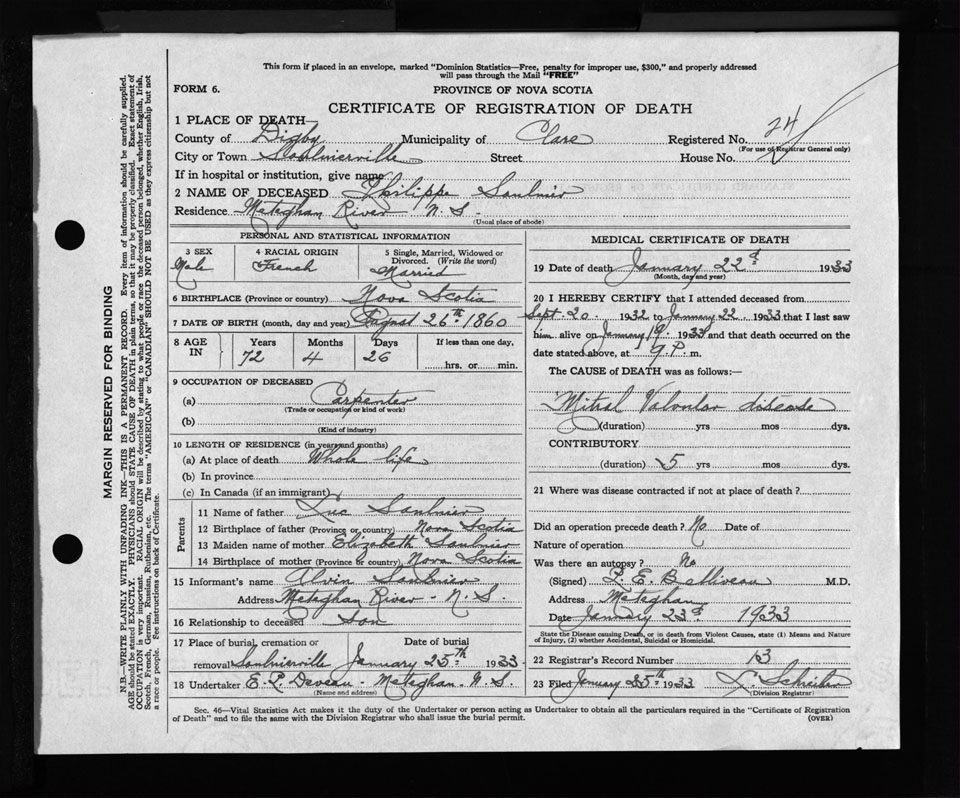 This form if placed in an envelope, marked "Dominion Statistics—Free, penalty for improper use, $300," and properly addressed
will pass through the Mail "FREE"
FORM 6.
PROVINCE OF NOVA SCOTIA
CERTIFICATE OF REGISTRATION OF DEATH
1 PLACE OF DEATH
County of Digby Municipality of Clare Registered No. 24
(For use of Registrar General only)
City or Town Saulnierville Street House No.
If in hospital or institution, give name
2 NAME OF DECEASED Philippe Saulnier
Residence Meteghan River N.S.
(Usual place of abode)
PERSONAL AND STATISTICAL INFORMATION
3 SEX 4 RACIAL ORIGIN 5 Single, Married, Widowed or
Divorced. (Write the word)
Male French Married
6 BIRTHPLACE (Province or country) Nova Scotia
7 DATE OF BIRTH (month, day and year) August 26th 1860
8 AGE IN Years Months Days If less than one day,
72 4 26 hrs. or min.
9 OCCUPATION OF DECEASED
(a) Carpenter
(Trade or occupation or kind of work)
(b)
(Kind of industry)
10 LENGTH OF RESIDENCE (in years and months)
(a) At place of death Whole life
(b) In province
(c) In Canada (if an immigrant)
Parents
11 Name of father Luc Saulnier
12 Birthplace of father (Province or country) Nova Scotia
13 Maiden name of mother Elizabeth Saulnier
14 Birthplace of mother (Province or country) Nova Scotia
15 Informant's name Alvin Saulnier
Address Meteghan River - N.S.
16 Relationship to deceased Son
17 Place of burial, cremation or Date of burial
removal Saulnierville January 25th 1933
18 Undertaker E. P. Deveau - Meteghan - N.S.
(Name and address)
MEDICAL CERTIFICATE OF DEATH
19 Date of death January 22d 1933
(Month, day and year)
20 I HEREBY CERTIFY that I attended deceased from
Sept. 20 1932 to January 22 1933 that I last saw
him alive on January 19 1933 and that death occurred on the
date stated above, at 9 P. m.
The CAUSE of DEATH was as follows:—
Mitral Valvular disease
(duration) yrs mos dys.
CONTRIBUTORY
(duration) 5 yrs mos dys.
21 Where was disease contracted if not at place of death?
Did an operation precede death? No Date of
Nature of operation
Was there an autopsy? No
(Signed) L. E. Belliveau M.D.
Address Meteghan
Date January 23d 1933
State the Disease causing Death, or in death from Violent Causes, state (1) Means and Nature
of Injury, (2) whether Accidental, Suicidal or Homicidal.
22 Registrar's Record Number 13
23 Filed January 25th 1933 L. Schreiber
(Division Registrar)
Sec. 46—Vital Statistics Act makes it the duty of the Undertaker or person acting as Undertaker to obtain all the particulars required in the "Certificate of Registration
of Death" and to file the same with the Division Registrar who shall issue the burial permit.
(OVER)
MARGIN RESERVED FOR BINDING
N.B.—WRITE PLAINLY WITH UNFADING INK—THIS IS A PERMANENT RECORD. Every item of information should be carefully supplied.
AGE should be stated EXACTLY. PHYSICIANS should STATE CAUSE OF DEATH in plain terms, so that it may be properly classified. Exact statement of
OCCUPATION is very important. RACIAL ORIGIN will be described by stating to what people or race the deceased person belonged, whether English, Irish,
Scotch, French, German, Russian, Ruthenian, etc. The terms "AMERICAN" or "CANADIAN" SHOULD NOT BE USED as they express citizenship but not
a race or people. See instructions on back of Certificate.